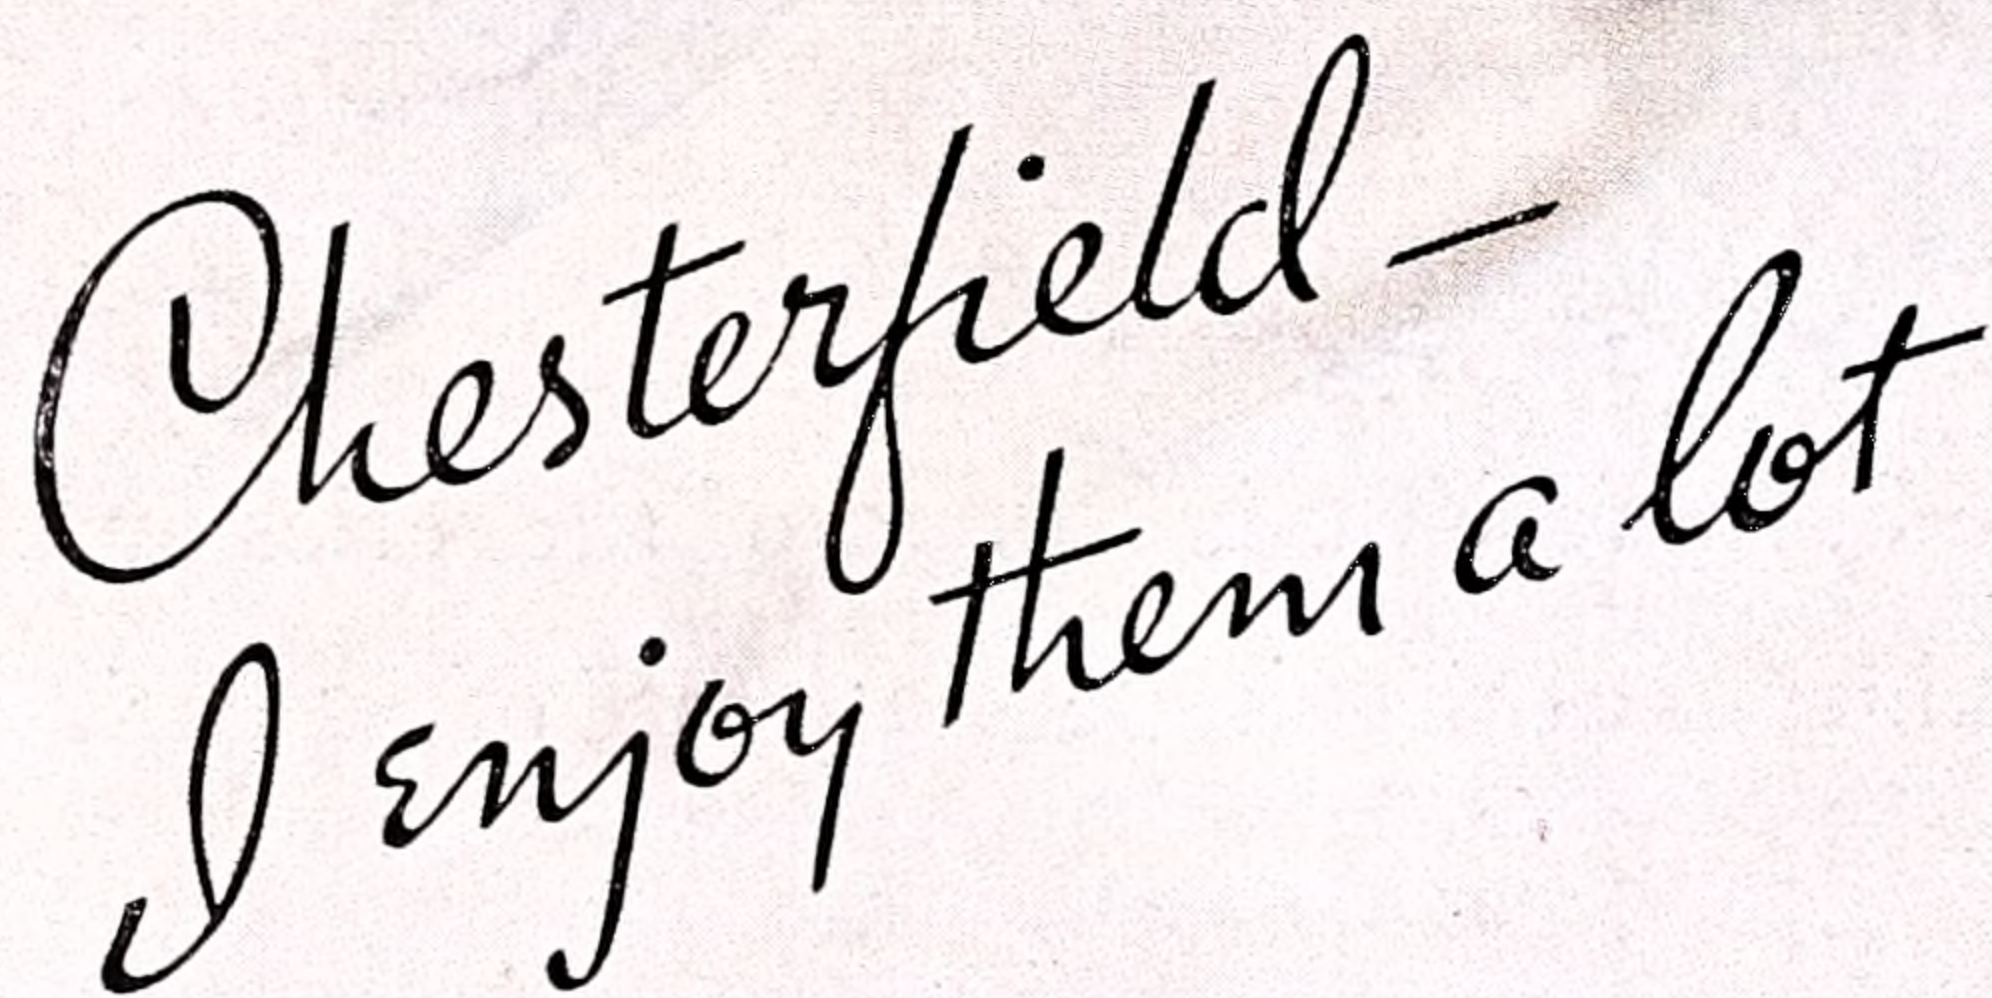 Chesterfield—
I enjoy them a lot